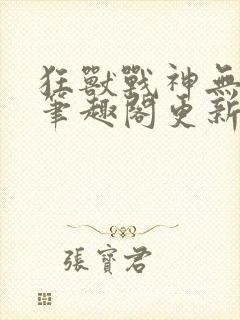 狂獸戰神無
筆趣閣更新
張寶君